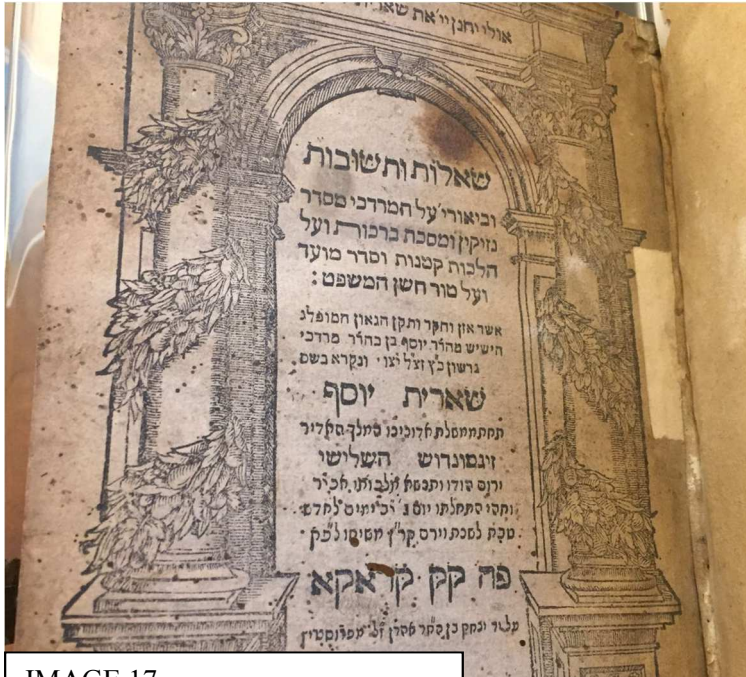 אולי יחנן יי׳ את שארית
שאלות ותשובות
וביאורי׳ על המרדכי מסדר
נזיקין ומסכת ברכות ועל
הלכות קטנות וסדר מועד
ועל טור חשן המשפט :
אשר אזן וחקר ותקן הגאון המופלג
הישיש מהר״ר יוסף בן כה״ר מרדכי
גרשון כ״ץ זצ״ל ונקרא בשם
שארית יוסף
תחת ממשלת אדונינו המלך האדיר
זיגמונדוש השלישי
ירום הודו ותנשא מלכותו אכי״ר
ותהי התחלתו יום
טבת לשנת
פה קק קראקא
על יד יצחק בן אהרן ז״ל מפרוסטיץ
IMAGE 17